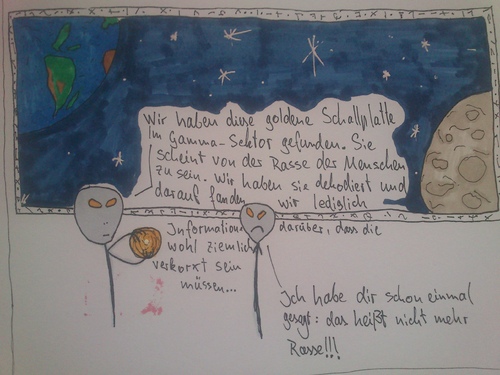 Wir haben diese goldene Schallplatte
im Gamma-Sektor gefunden. Sie
scheint von der Rasse der Menschen
zu sein. Wir haben sie dekodiert und
darauf fanden wir lediglich
Informationen darüber, dass die
wohl ziemlich
verkorxt sein
müssen...
Ich habe dir schon einmal
gesagt: das heißt nicht mehr
Rasse!!!